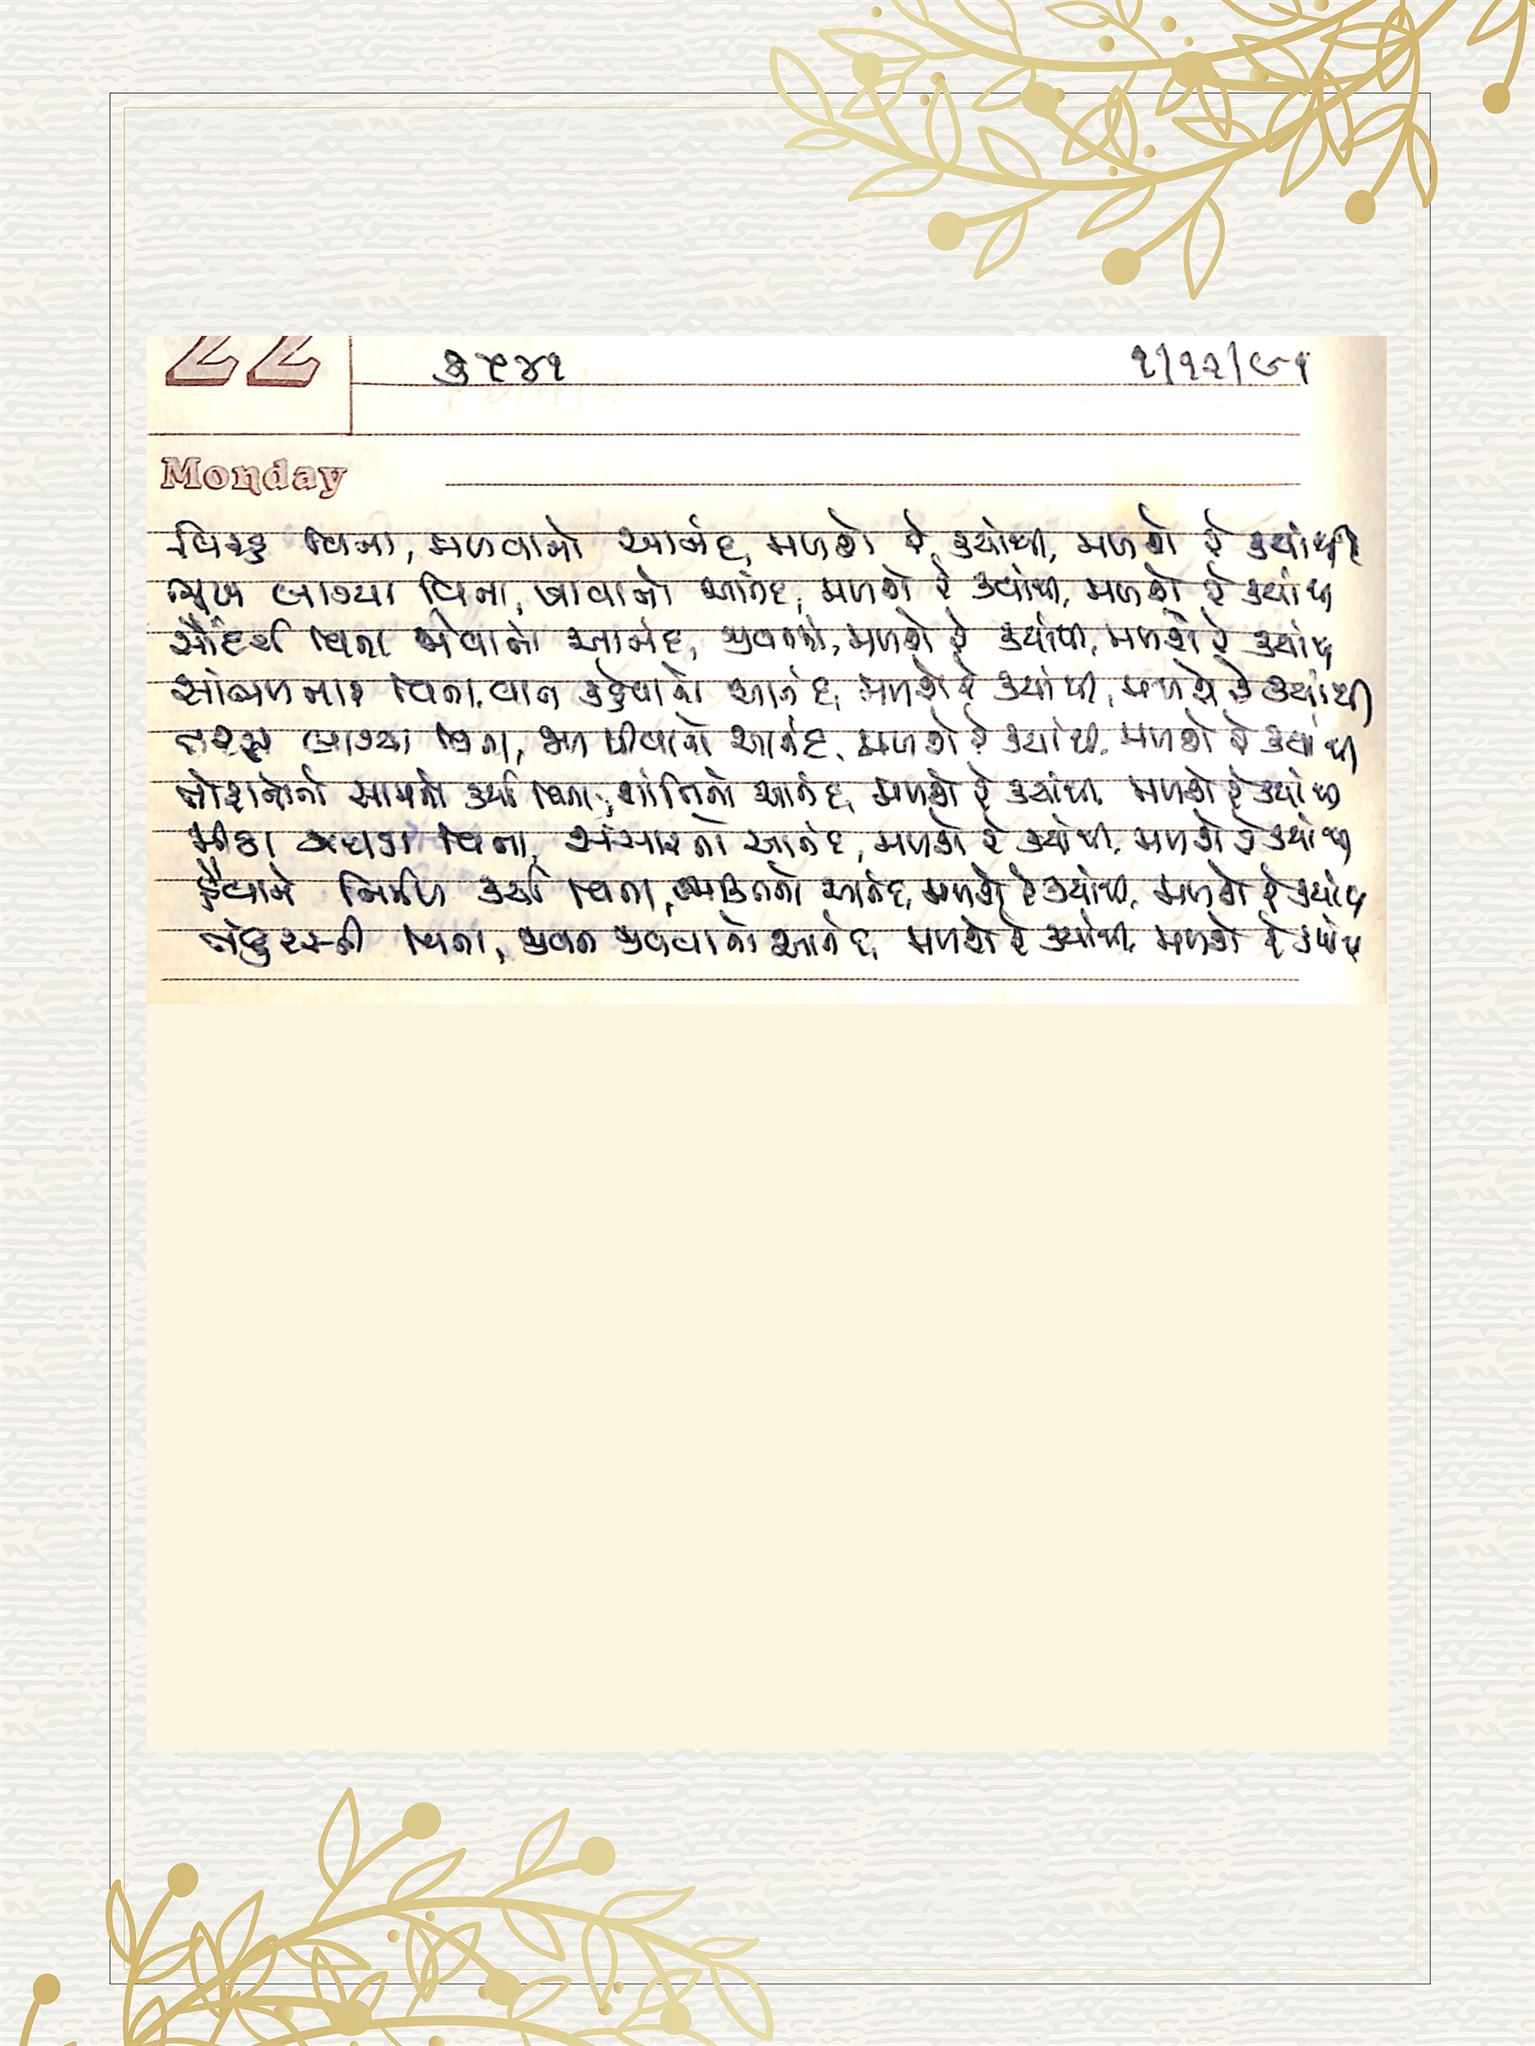 22 ફ ૫૮૪૧ ૧/૧૨/૯૧
Monday
વિરહ વિના, મળવાનો આનંદ, મળશે રે, ક્યાંથી, મળશે રે ક્યાંથી
ભૂખ લાગ્યા વિના, ખાવાનો આનંદ, મળશે રે ક્યાંથી, મળશે રે ક્યાંથી
સૌંદર્ય વિના જોવાનો આનંદ, જીવનનો, મળશે રે ક્યાંથી, મળશે રે ક્યાંથી
સાંભળનાર વિના, વાત કહેવાનો આનંદ, મળશે રે ક્યાંથી, મળશે રે ક્યાંથી
તરસ લાગ્યા વિના, જળ પીવાનો આનંદ, મળશે રે ક્યાંથી, મળશે રે ક્યાંથી
તોફાનોનો સામનો કર્યા વિના, શાંતિનો આનંદ, મળશે રે ક્યાંથી, મળશે રે ક્યાંથી
મીઠા ઝઘડા વિના, સંસારનો આનંદ, મળશે રે ક્યાંથી, મળશે રે ક્યાંથી
હૈયાને નિર્મળ કર્યા વિના, ભક્તિનો આનંદ, મળશે રે ક્યાંથી, મળશે રે ક્યાંથી
તંદુરસ્તી વિના, જીવન જીવવાનો આનંદ, મળશે રે ક્યાંથી, મળશે રે ક્યાંથી